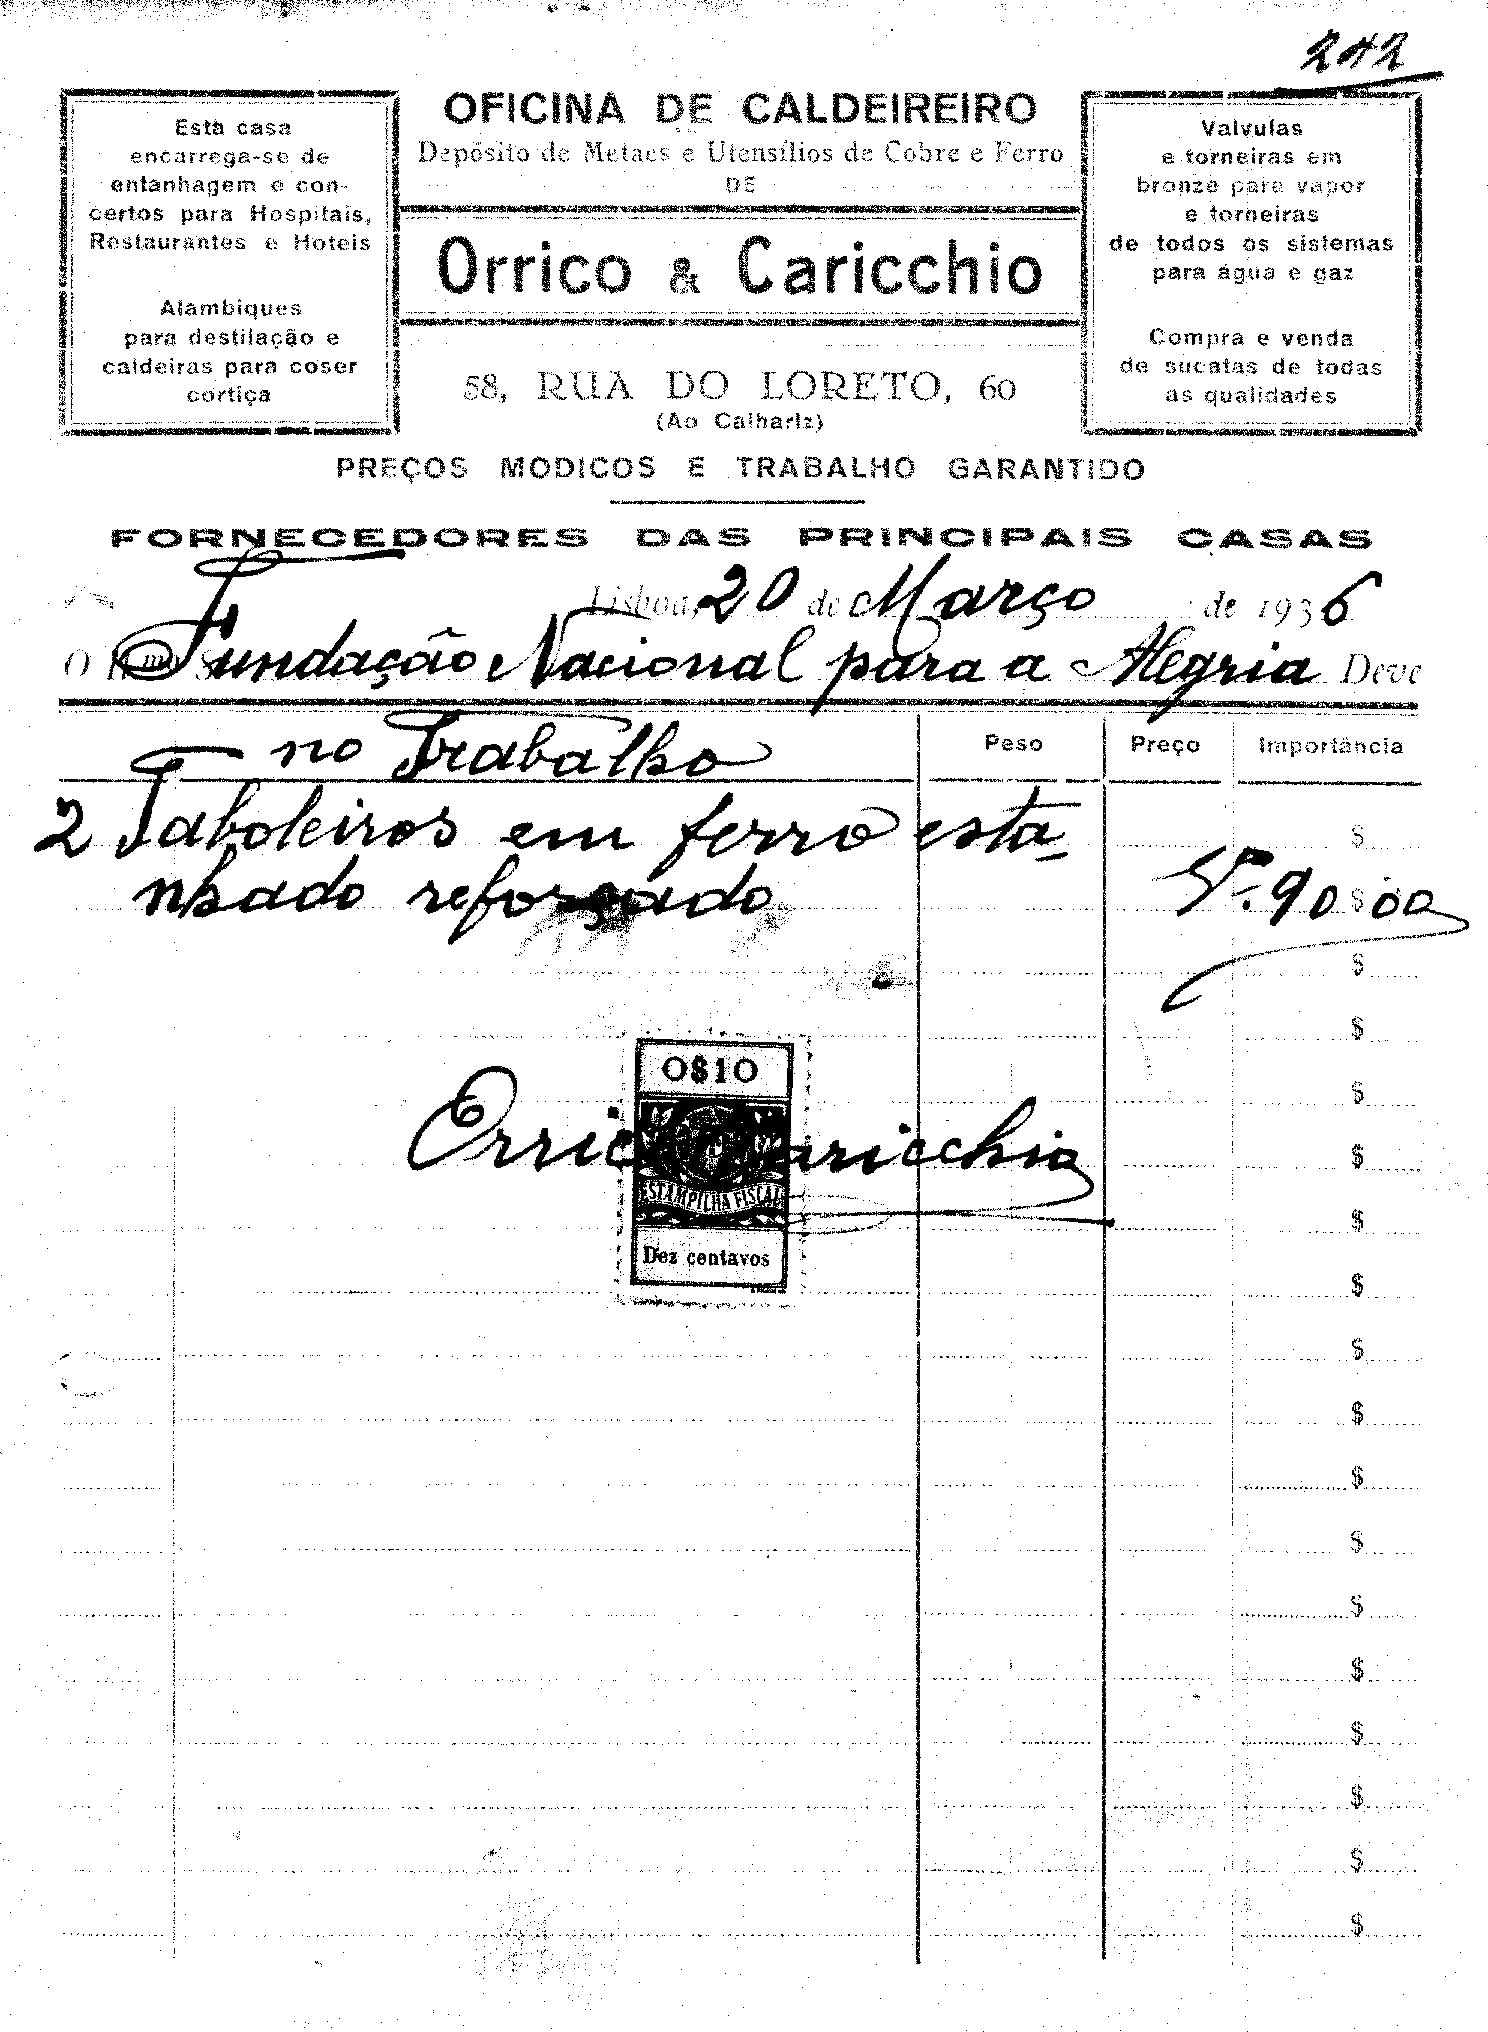 242
Esta casa
encarrega-se de
entanhagem e con-
certos para Hospitais,
Restaurantes e Hoteis
Alambiques
para destilação e
caldeiras para coser
cortiça
OFICINA DE CALDEIREIRO
Depósito de Metaes e Utensílios de Cobre e Ferro
DE
Orrico & Caricchio
58, RUA DO LORETO, 60
(Ao Calhariz)
Valvulas
e torneiras em
bronze para vapor
e torneiras
de todos os sistemas
para água e gaz
Compra e venda
de sucatas de todas
as qualidades
PREÇOS MODICOS E TRABALHO GARANTIDO
FORNECEDORES DAS PRINCIPAIS CASAS
Lisboa, 20 de Março de 1936
O Fundação Nacional para a Alegria Deve
no Trabalho
Peso Preço Importância
2 Taboleiros em ferro esta-
nhado reforçado 90$00
0$10
Orrico Caricchio
ESTAMPILHA FISCAL
Dez centavos